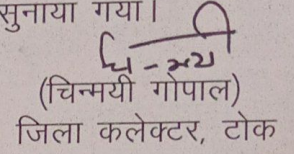 सुनाया गया।
(चिन्मयी गोपाल)
जिला कलेक्टर, टोंक